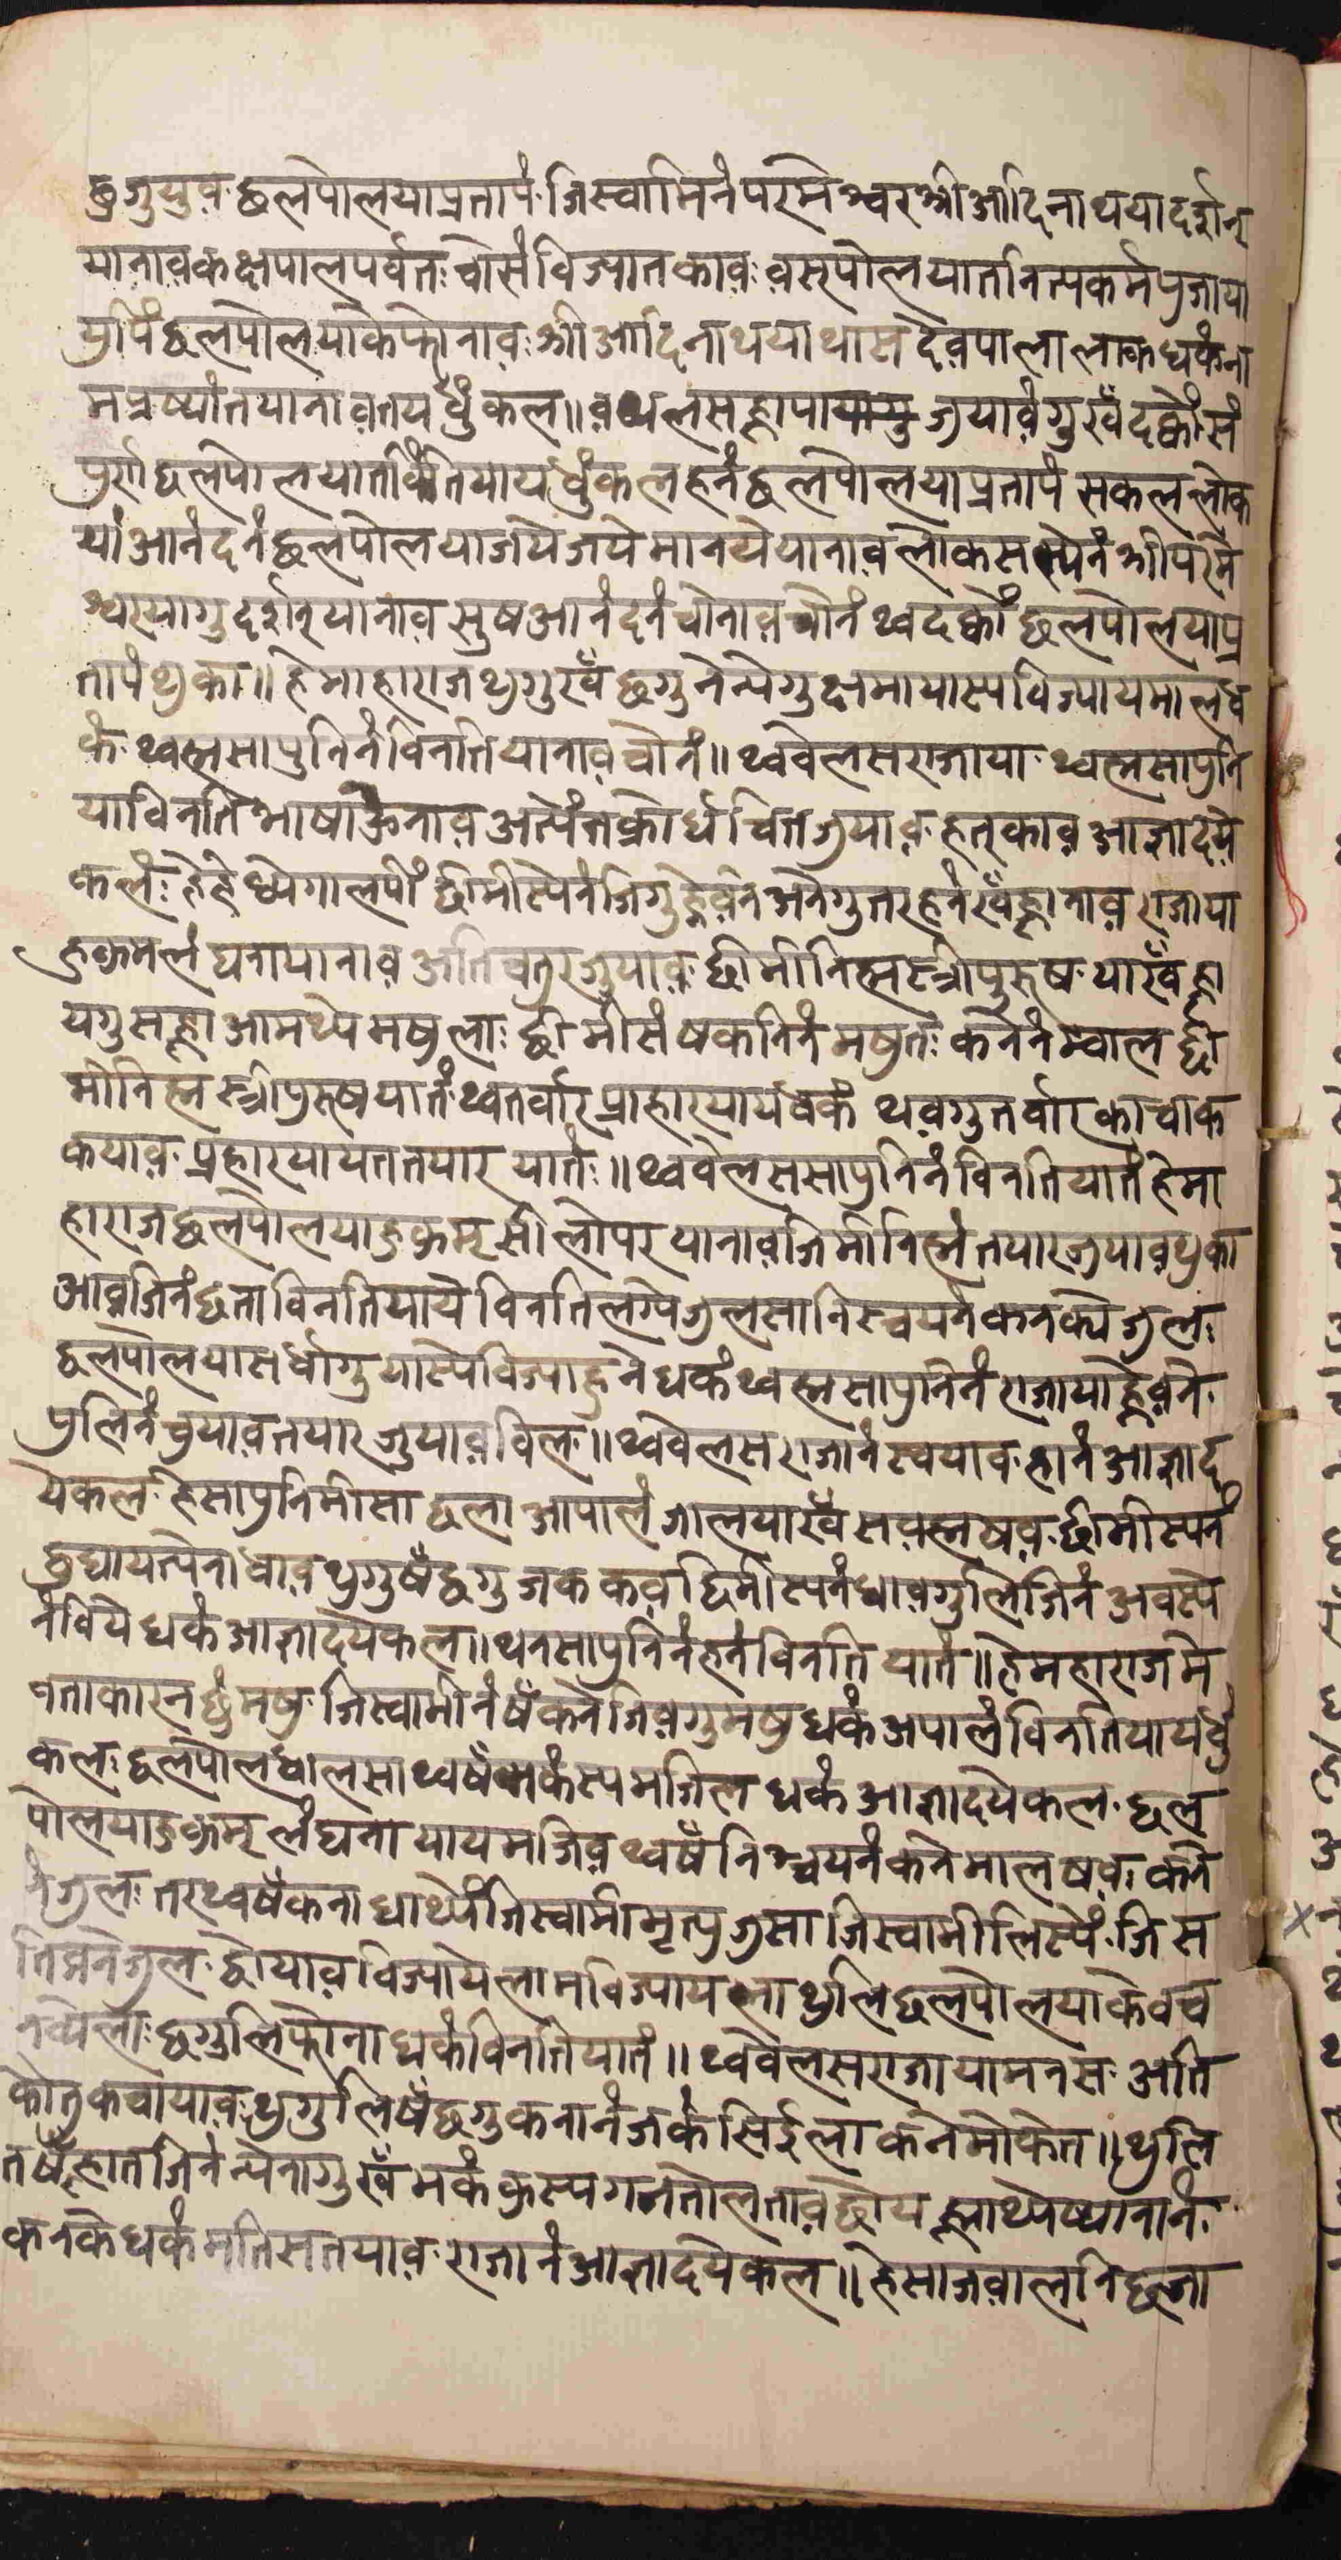 छु जुयुव छलपोलया प्रतापं जिस्वामिनं परमेश्वर श्रीआदिनाथया दर्शन्
यानाव कक्षपाल पर्वतः चोसं विज्यातकाव वसपोलयात नित्यकर्म पूजाया
यूपिं छलपोलयाके फोनाव श्रीआदिनाथयाथास देवपाला लाक धकं ना
म प्रष्यांत यानाव तय धुंकल॥ व थलस ह्लापाया जुयावं गु खँ दक्वों सं
पूर्ण छलपोलयात विंतियाय धुंकल हनं छलपोलया प्रतापं सकल लोक
यां आनंदनं छलपोलया जय जय मानये यानाव लोकसस्पेनं श्रीपरमे
श्वरयागु दर्शन् यानाव सुष आनंदनं चोनाव चोनं थ्व दक्वों छलपोलया प्र
तापं थुका॥ हे माहाराज थुगु खँ छगु नेन्येगु क्षमा यास्य विज्याय माल ध
कं थ्वह्मसा प्रुनिनं विनति यानाव चोनं॥ थ्व वेलस राजाया थ्वह्मसा प्रुनि
या विनति भाषा ङेनाव अत्यंत क्रोध चित्त जुयाव हतुकाव आज्ञा दय
कलं हे हे ध्येगालपिं छिमिस्पेनं जिगु हेवने अनेगु तरहनं खँ ह्लानाव राजाया
हुकुमलं घना यानाव अति चतुर जुयाव छिमि निह्म स्त्रीपुरुषया खँ ह्ला
यगु सह्ला आमथ्ये मषुला छिमिसं षकनिनं मषुत कनेनं म्वाल छि
मि निह्म स्त्रीपुरुषयातं थ्व तर्वार प्राहार याय धकं थवगु तर्वार काचाक
कयाव प्रहार यायत तयार यातं॥ थ्व वेलस सा प्रुनिनं विनति यातं हे मा
हाराज छलपोलया हुकुम् सिलोपर यानाव जिमि निह्मं तयार जुयाव थुका
आव जिनं छता विनति याये विनति लग्पे जुलसा निस्चयनं कनक्य जुल
छलपोलया सर्धागु यास्ये विज्याहुने धकं थ्वह्मसा प्रुनिनं राजाया हेवने
पुलिनं चुयाव तयार जुयाव विल॥ थ्व वेलस राजानं स्वयाव हानं आज्ञा द
येकल हे सा प्रुनि मीसा छला आपालं जालया खँ सवह्म षव छिमिस्पनं
छु घायत्येना धाव थुगु षँ छगु जक कव छिमिस्पनं धावगुलि जिनं अवस्पे
नं विये धकं आज्ञा दयकल॥ थन सा प्रुनिनं हनं विनति यातं॥ हे महाराज मे
वता कारन छुं मषु जिस्वामीनं षँ कने जिवगु मषु धकं अपालं विनति याय धुं
कल छलपोल धालसा थ्व षँ मकंस्य मजिल धकं आज्ञा दयेकल छल
पोलया हुकुम् लंघना याय मजिव थ्व षँ निश्चयनं कने माल षव कने
नं जुल तर थ्व षँ कना धाथ्यें जिस्वामी मृत्यु जुसा जिस्वामी लिस्पें जि स
ति वने जुल छोयाव विज्यायेला मविज्यायला थुलि छलपोलयाके वच
न व्येला छगुलि फोना धकं विनति यातं॥ थ्व वेलस राजाया मनस अति
कौतुक चायाव थुगुलि षँ छगु कनानं जकं सिईला कने मोकेत॥ थुलि
त षँ ह्लात जिनं न्येनागु खँ मकंकुस्य गन तोलताव छोय ह्लाथ्येष्यानानं
कनके धकं मति सतयाव राजानं आज्ञा दयकल॥ हे साजवालनि छ जा